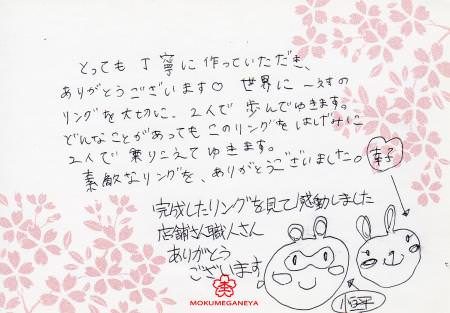 とっても丁寧に作っていただき、
ありがとうございます♡ 世界に一つずの
リングを大切に、2人で歩んでゆきます。
どんなことがあってもこのリングをはげみに
2人で乗りこえてゆきます。
素敵なリングを、ありがとうございました。
幸子
完成したリングを見て感動しました
店舗さん職人さん
ありがとう
ございます。
MOKUMEGANEYA